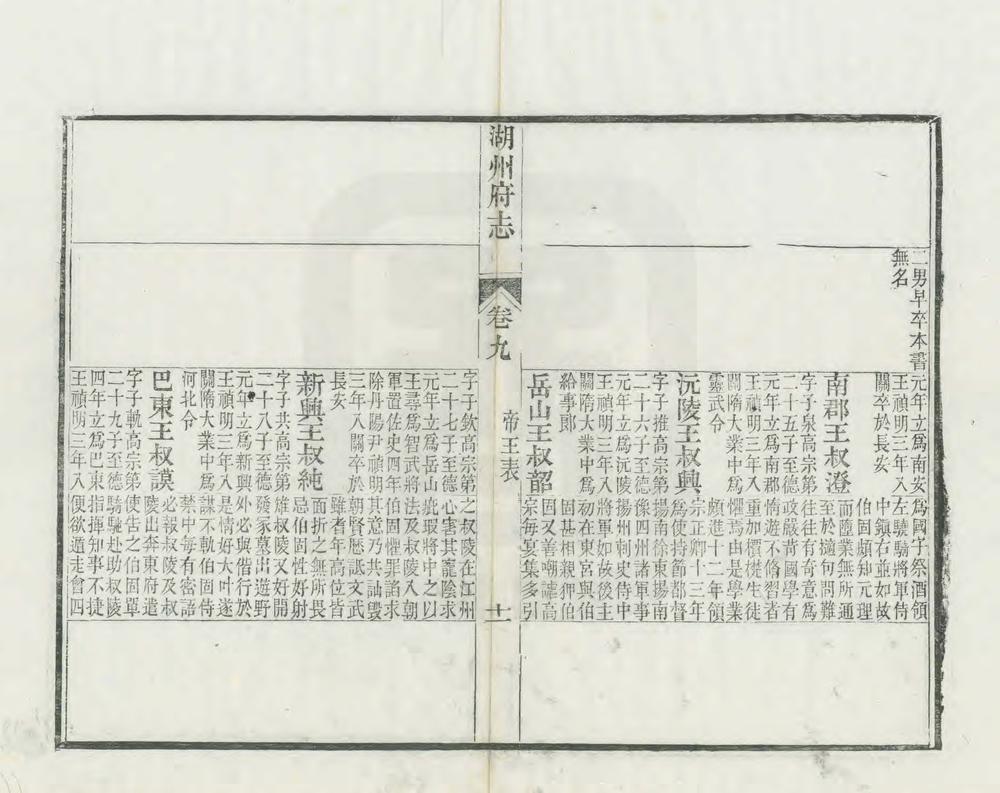 二男早卒本書
無名
元年立爲南安
王禎明三年入
關卒於長安
南郡王叔澄
字子泉高宗第
二十五子至德
元年立爲南郡
王禎明三年入
關隋大業中爲
靈武令
沅陵王叔興
字子推高宗第
二十六子至德
元年立爲沅陵
王禎明三年入
關隋大業中爲
給事郎
岳山王叔韶
爲國子祭酒領
左驍騎將軍侍
中鎮右並如故
伯固頗知元理
而墮業無所通
至於擿句問難
往往有奇意爲
政嚴苛國學有
惰遊不脩習者
重加檟楚生徒
懼焉由是學業
頗進十二年領
宗正卿十三年
爲使持節都督
揚南徐東揚南
豫四州諸軍事
揚州刺史侍中
將軍如故後主
初在東宮與伯
固甚相親狎伯
固又善嘲謔高
宗每宴集多引
湖州府志
卷九
帝王表
十一
字子欽高宗第
二十七子至德
元年立爲岳山
王尋爲智武將
軍置佐史四年
除丹陽尹禎明
三年入關卒於
長安
新興王叔純
字子共高宗第
二十八子至德
元年立爲新興
王禎明三年入
關隋大業中爲
河北令
巴東王叔謨
字子軌高宗第
二十九子至德
四年立爲巴東
王禎明三年入
之叔陵在江州
心害其寵陰求
疵瑕將中之以
法及叔陵入朝
伯固懼罪諂求
其意乃共訕毀
朝賢歷詆文武
雖耆年高位皆
面折之無所畏
忌伯固性好射
雉叔陵又好開
發冢墓出遊野
外必與偕行於
是情好大叶遂
謀不軌伯固侍
禁中每有密語
必報叔陵及叔
陵出奔東府遣
使告之伯固單
馬馳赴助叔陵
指揮知事不捷
便欲遁走會四